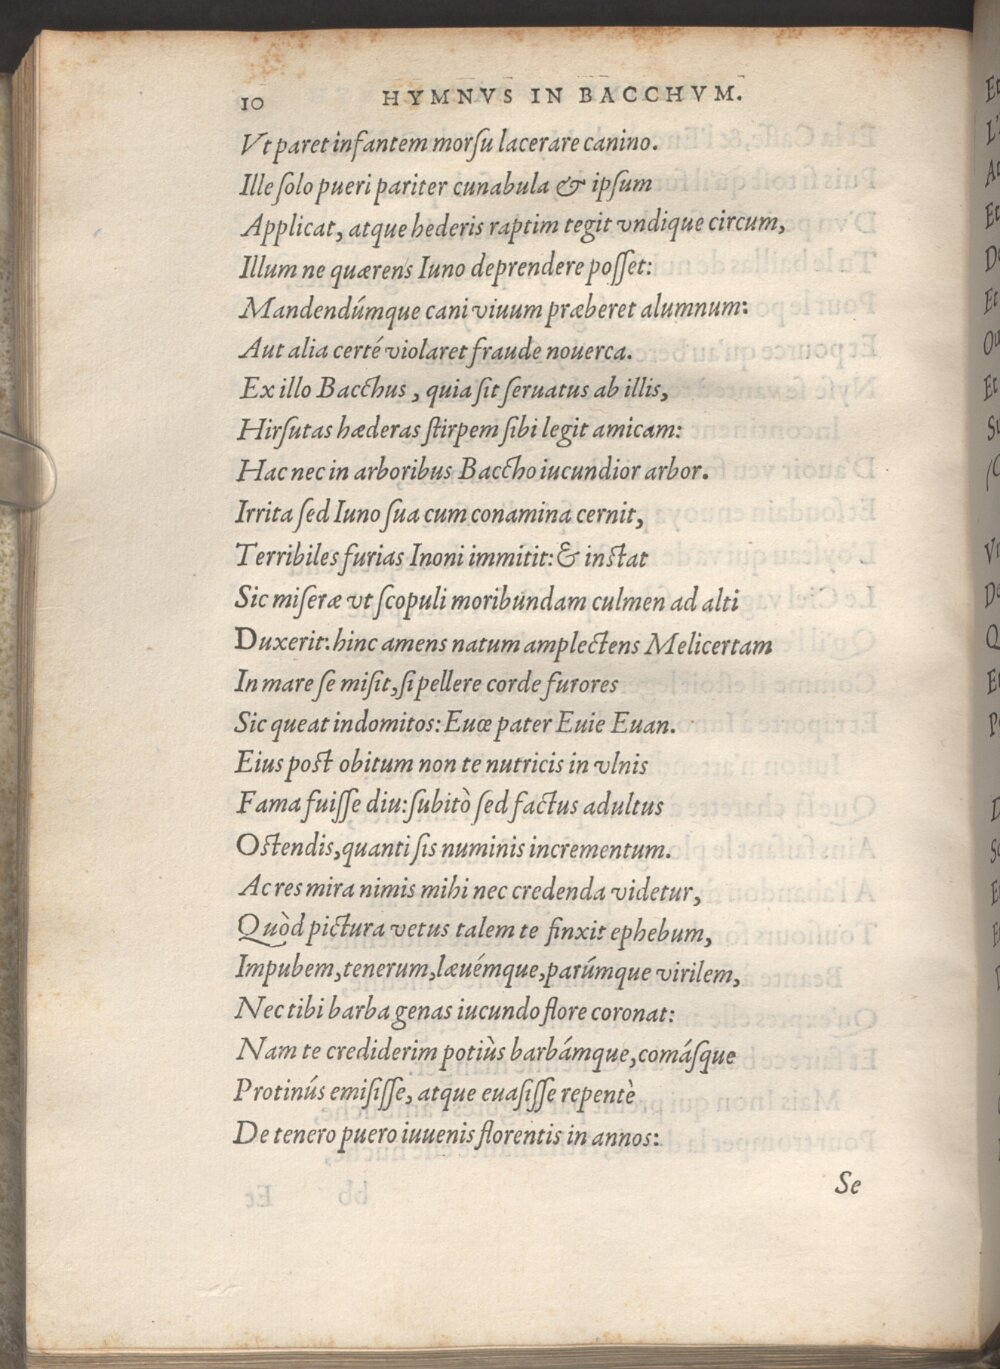 10 HYMNVS IN BACCHVM.
Vt paret infantem morſu lacerare canino.
Ille ſolo pueri pariter cunabula & ipſum
Applicat, atque hederis raptim tegit vndique circum,
Illum ne quærens Iuno deprendere poſſet:
Mandendúmque cani viuum præberet alumnum:
Aut alia certé violaret fraude nouerca.
Ex illo Bacchus, quia ſit ſeruatus ab illis,
Hirſutas hæderas ſtirpem ſibi legit amicam:
Hac nec in arboribus Baccho iucundior arbor.
Irrita ſed Iuno ſua cum conamina cernit,
Terribiles furias Inoni immitit: & inſtat
Sic miſeræ vt ſcopuli moribundam culmen ad alti
Duxerit: hinc amens natum amplectens Melicertam
In mare ſe miſit, ſi pellere corde furores
Sic queat indomitos: Euœ pater Euie Euan.
Eius poſt obitum non te nutricis in vlnis
Fama fuiſſe diu: ſubitò ſed factus adultus
Oſtendis, quanti ſis numinis incrementum.
Ac res mira nimis mihi nec credenda videtur,
Quòd pictura vetus talem te finxit ephebum,
Impubem, tenerum, læuémque, parúmque virilem,
Nec tibi barba genas iucundo flore coronat:
Nam te crediderim potiùs barbámque, comáſque
Protinús emiſiſſe, atque euaſiſſe repentè
De tenero puero iuuenis florentis in annos:
Se